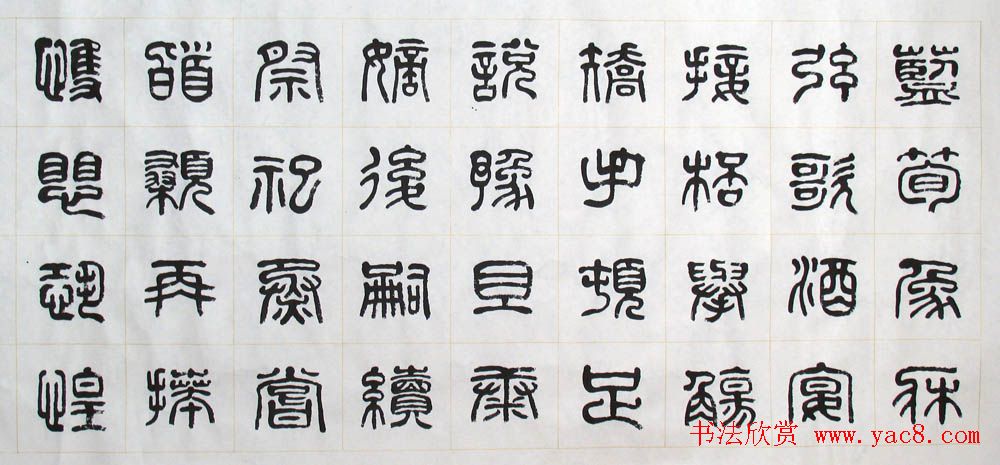 藍筍象牀
弦歌酒宴
接桮舉觴
矯手頓足
說豫且康
嫡後嗣續
祭祀烝嘗
䭫顙再拜
愯愳恐惶
书法欣赏 www.yac8.com